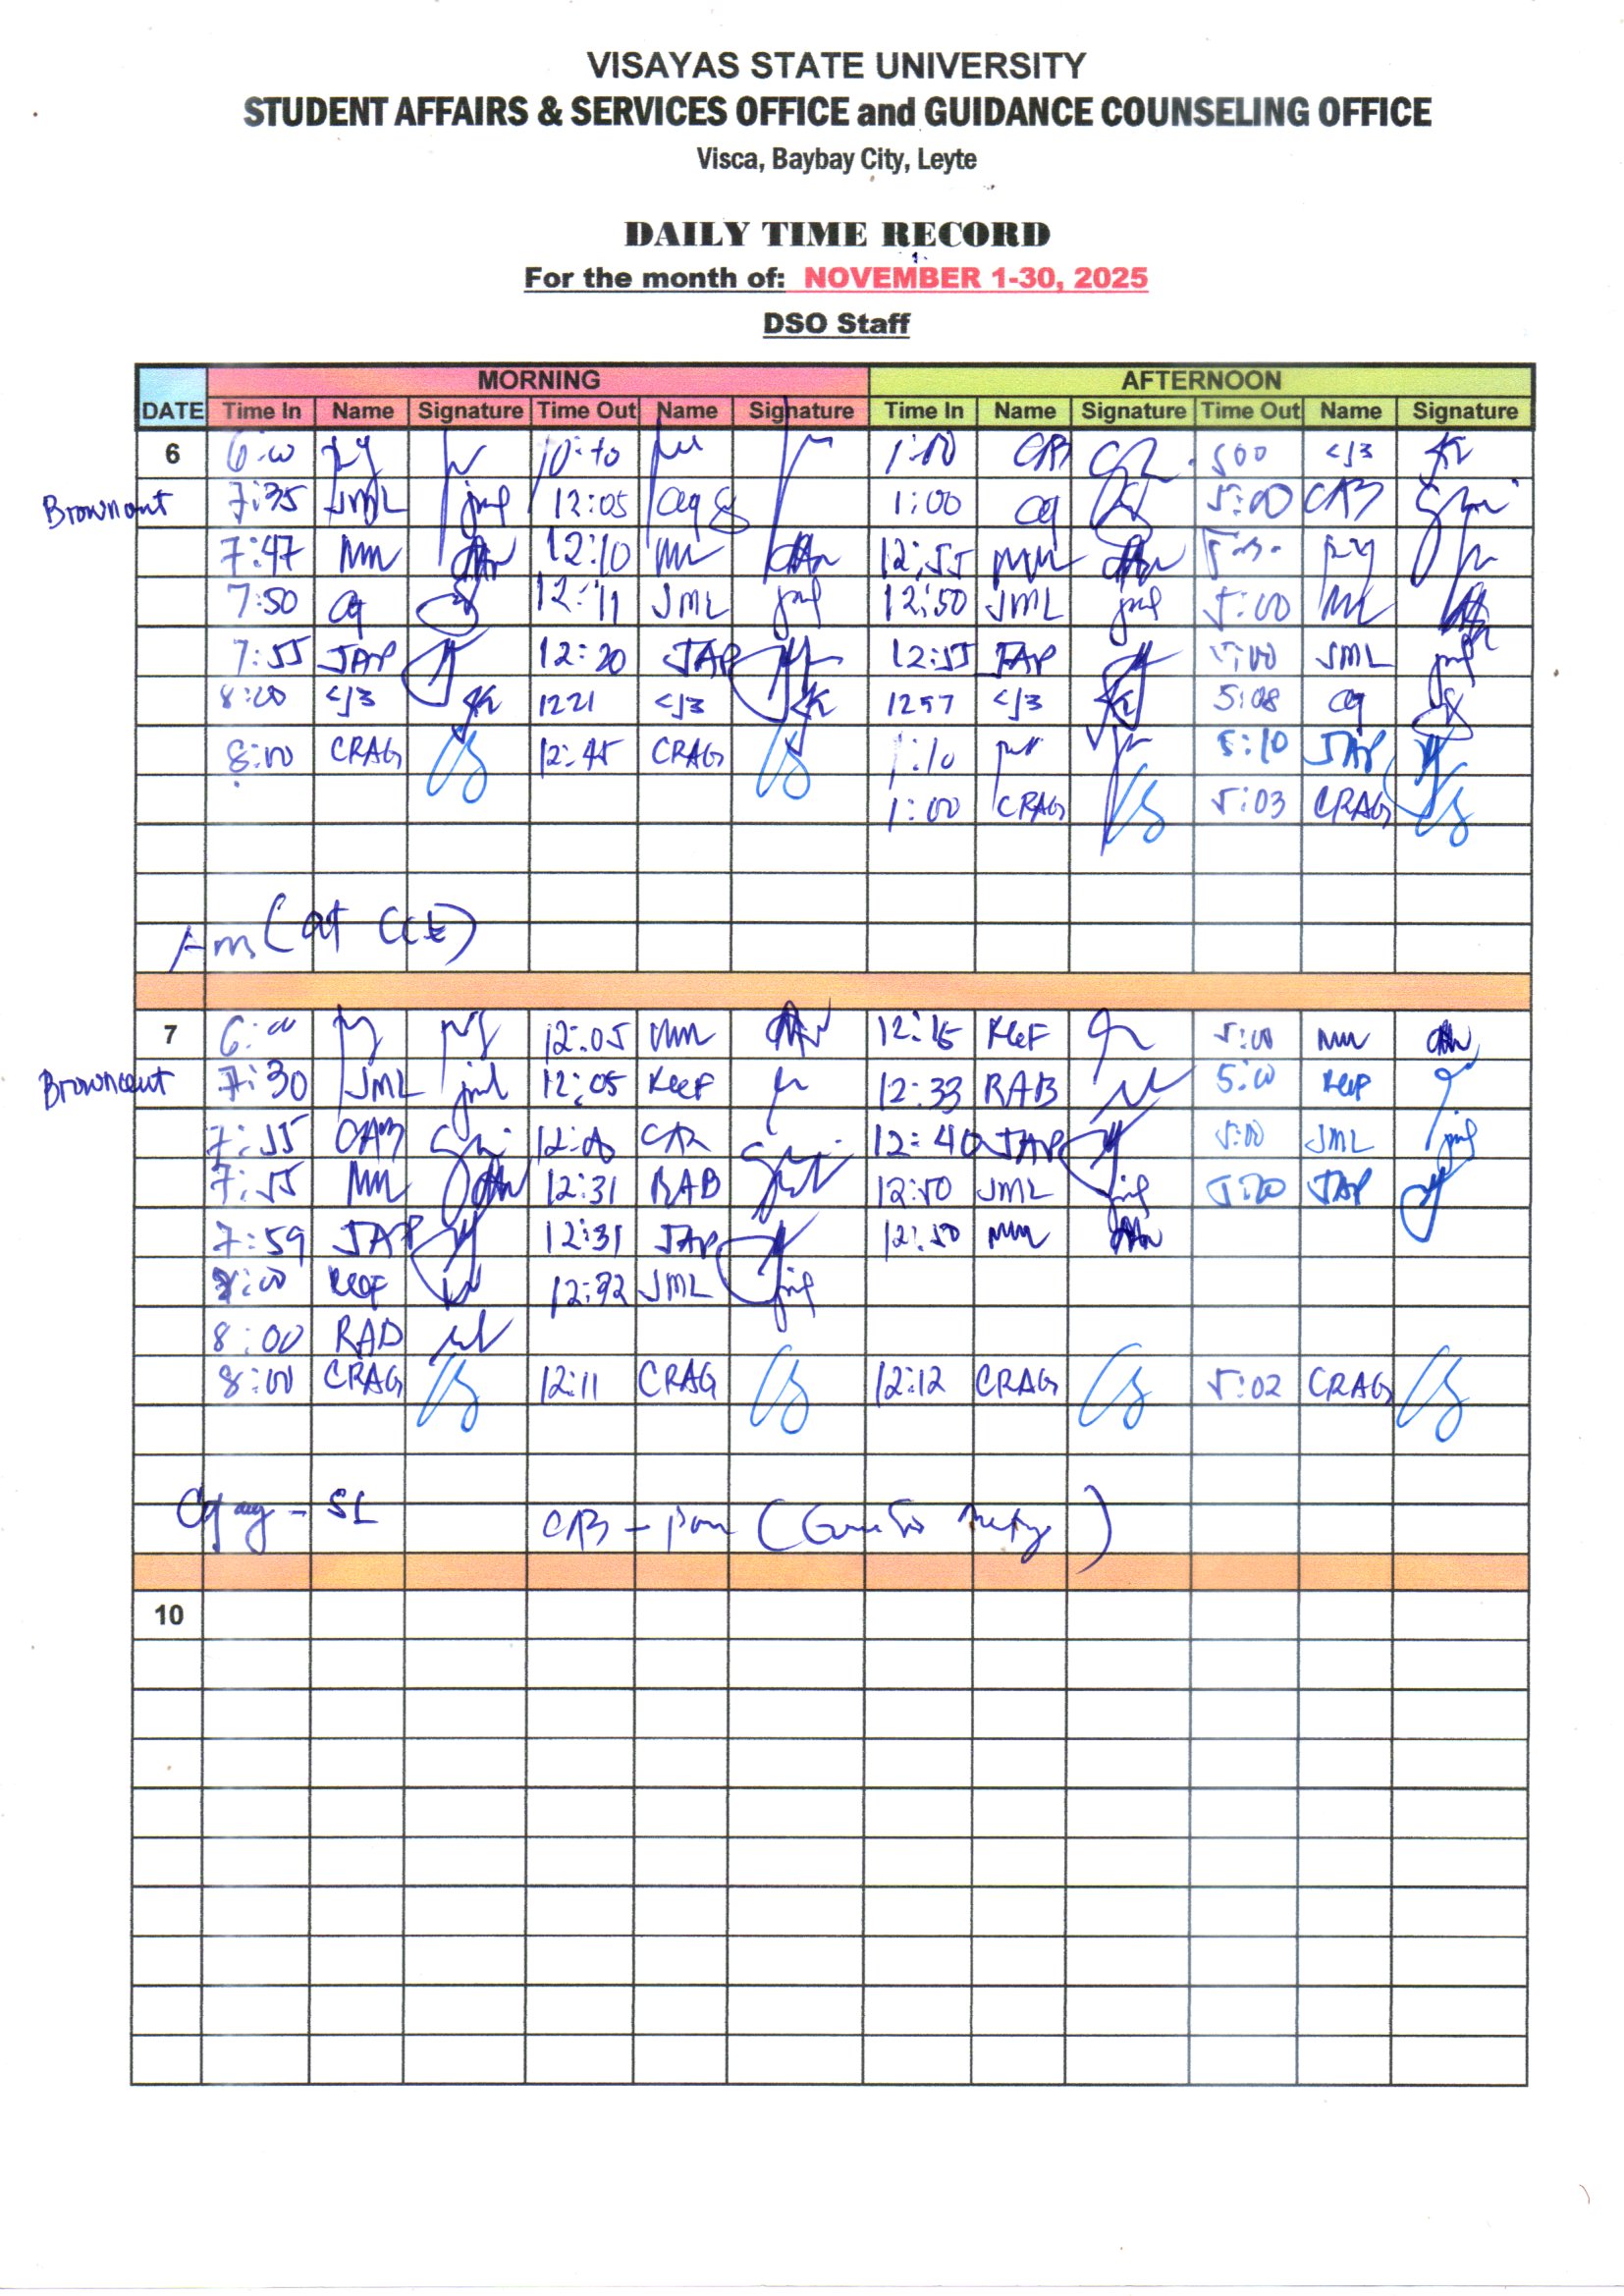 VISAYAS STATE UNIVERSITY
STUDENT AFFAIRS & SERVICES OFFICE and GUIDANCE COUNSELING OFFICE
Visca, Baybay City, Leyte
DAILY TIME RECORD
For the month of: NOVEMBER 1-30, 2025
DSO Staff
MORNING AFTERNOON
DATE Time In Name Signature Time Out Name Signature Time In Name Signature Time Out Name Signature
6 1:00 CAB 500 <J3
Brownout 7:35 JML 12:05 1:00 5:00 CAB
7:47 MM 12:10 MM 12:55 MM
7:50 12:11 JML 12:50 JML 5:00 MM
7:55 JAP 12:20 JAP 12:55 JAP 5:00 JML
8:00 <J3 1221 <J3 1257 <J3 5:08
8:00 CRAG 12:45 CRAG 1:10 5:10 JAP
1:00 CRAG 5:03 CRAG
(at CCE)
7 6:00 12:05 MM 12:15 KGF 5:00 MM
Brownout 7:30 JML 12:05 KGF 12:33 RAB 5:00 KGF
7:55 CAB 12:40 JAP 5:00 JML
7:55 MM 12:31 RAB 12:50 JML 5:20 JAP
7:59 JAP 12:31 JAP 12:50 MM
8:00 KGF 12:32 JML
8:00 RAB
8:00 CRAG 12:11 CRAG 12:12 CRAG 5:02 CRAG
- SL CAB -
10